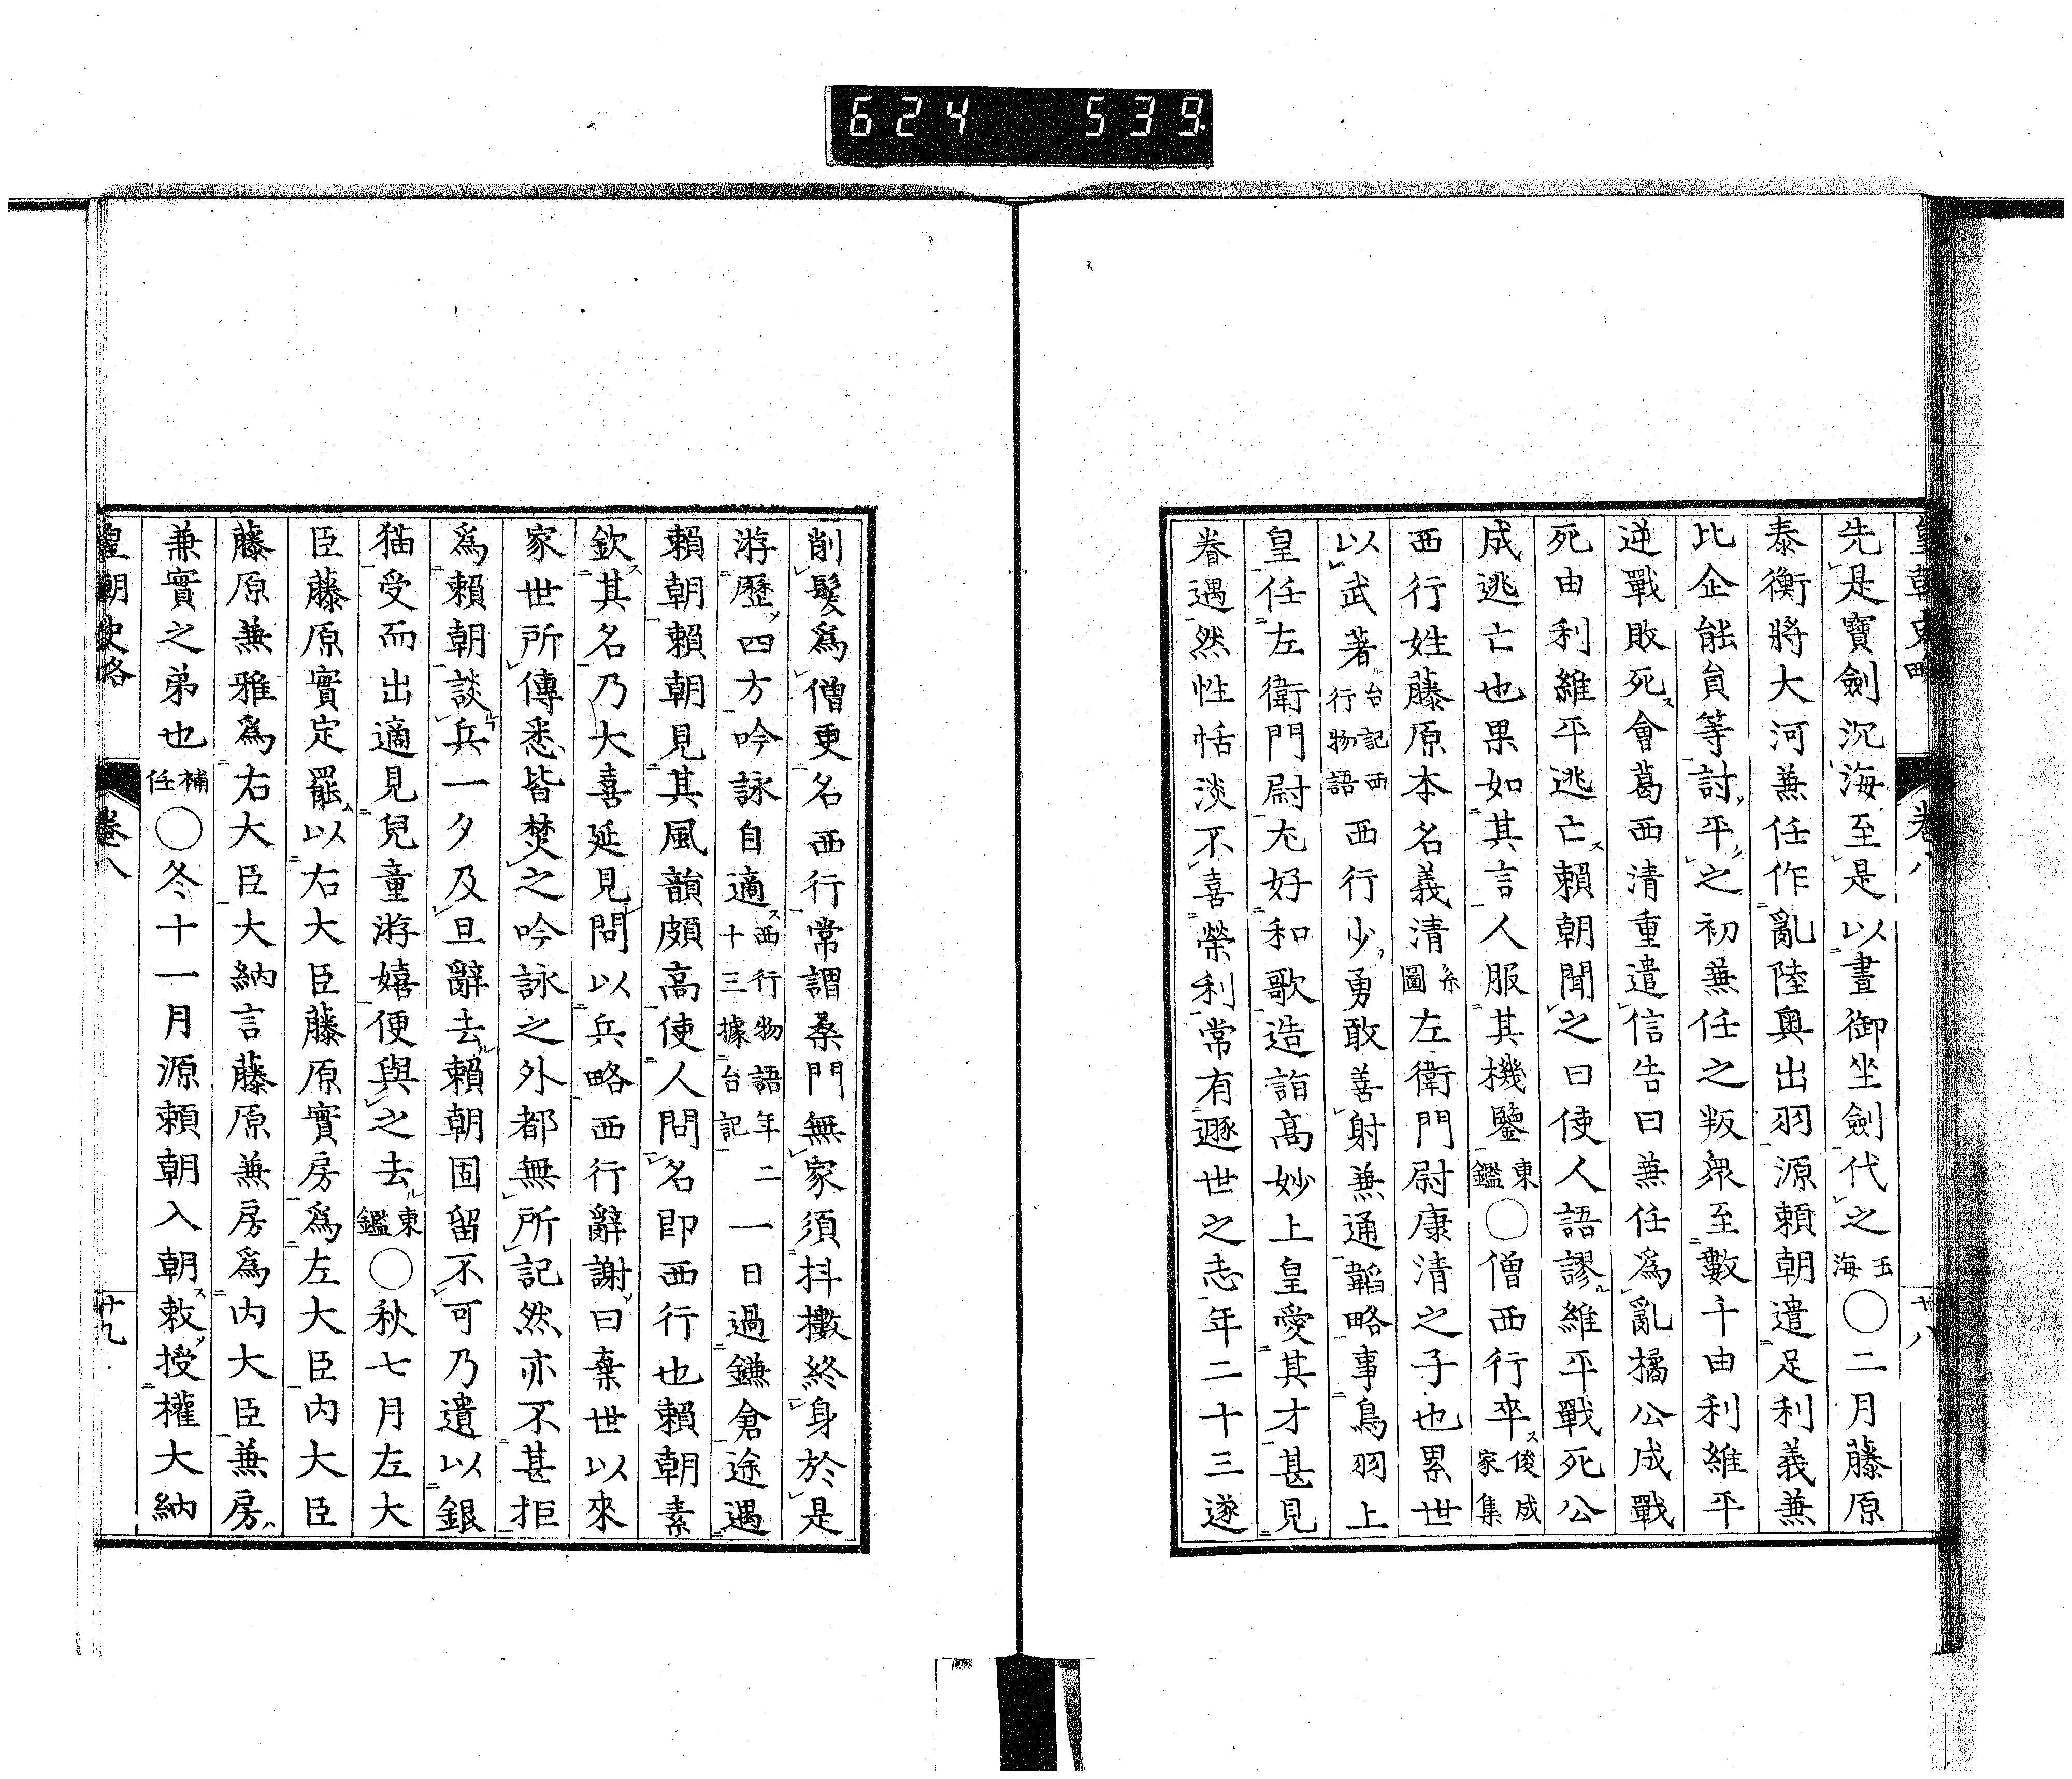 624 539
皇朝史略 卷八 十八
先是寶劍沉海至是以晝御坐劍代之玉海〇二月藤原
泰衡將大河兼任作亂陸奧出羽源賴朝遣足利義兼
比企能員等討平之初兼任之叛衆至數千由利維平
逆戰敗死會葛西清重遣信告曰兼任爲亂橘公成戰
死由利維平逃亡賴朝聞之曰使人語謬維平戰死公
成逃亡也果如其言人服其機鑒東鑑〇僧西行卒俊成家集
西行姓藤原本名義清系圖左衛門尉康清之子也累世
以武著台記西行物語西行少勇敢善射兼通韜略事鳥羽上
皇任左衛門尉尤好和歌造詣高妙上皇愛其才甚見
眷遇然性恬淡不喜榮利常有遯世之志年二十三遂
削髮爲僧更名西行常謂桑門無家須抖擻終身於是
游歷四方吟詠自適西行物語年二十三據台記一日過鎌倉途遇
賴朝賴朝見其風韻頗高使人問名卽西行也賴朝素
欽其名乃大喜延見問以兵略西行辭謝曰棄世以來
家世所傳悉皆焚之吟詠之外都無所記然亦不甚拒
爲賴朝談兵一夕及旦辭去賴朝固留不可乃遺以銀
猫受而出適見兒童游嬉便與之去東鑑〇秋七月左大
臣藤原實定罷以右大臣藤原實房爲左大臣内大臣
藤原兼雅爲右大臣大納言藤原兼房爲内大臣兼房
兼實之弟也補任〇冬十一月源賴朝入朝敕授權大納
皇朝史略 卷八 十九